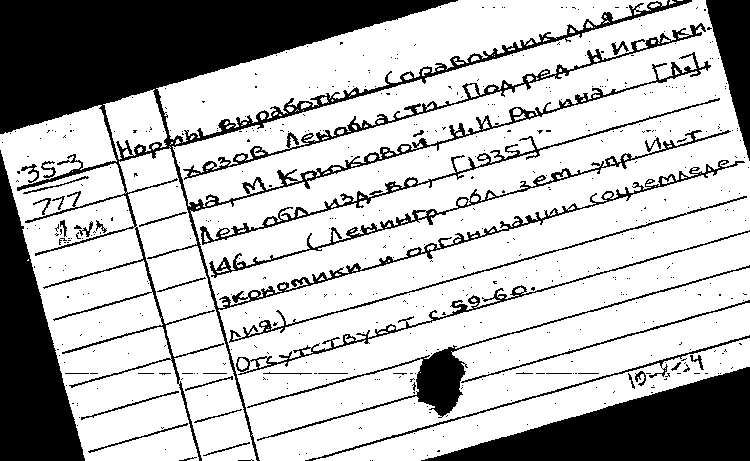 Нормы выработки. (Справочник для кол-
хозов Ленобласти. Под ред. Н. Иголки-
на, М. Крюковой, Н.И. Рысина. [Л.],
Лен. обл. изд-во, [1935]
146 с. (Ленингр. обл. зем. упр. Ин-т
экономики и организации соцземледе-
лия.).
Отсутствуют с. 59-60.
35-3
777
2 экз.
10-8-54